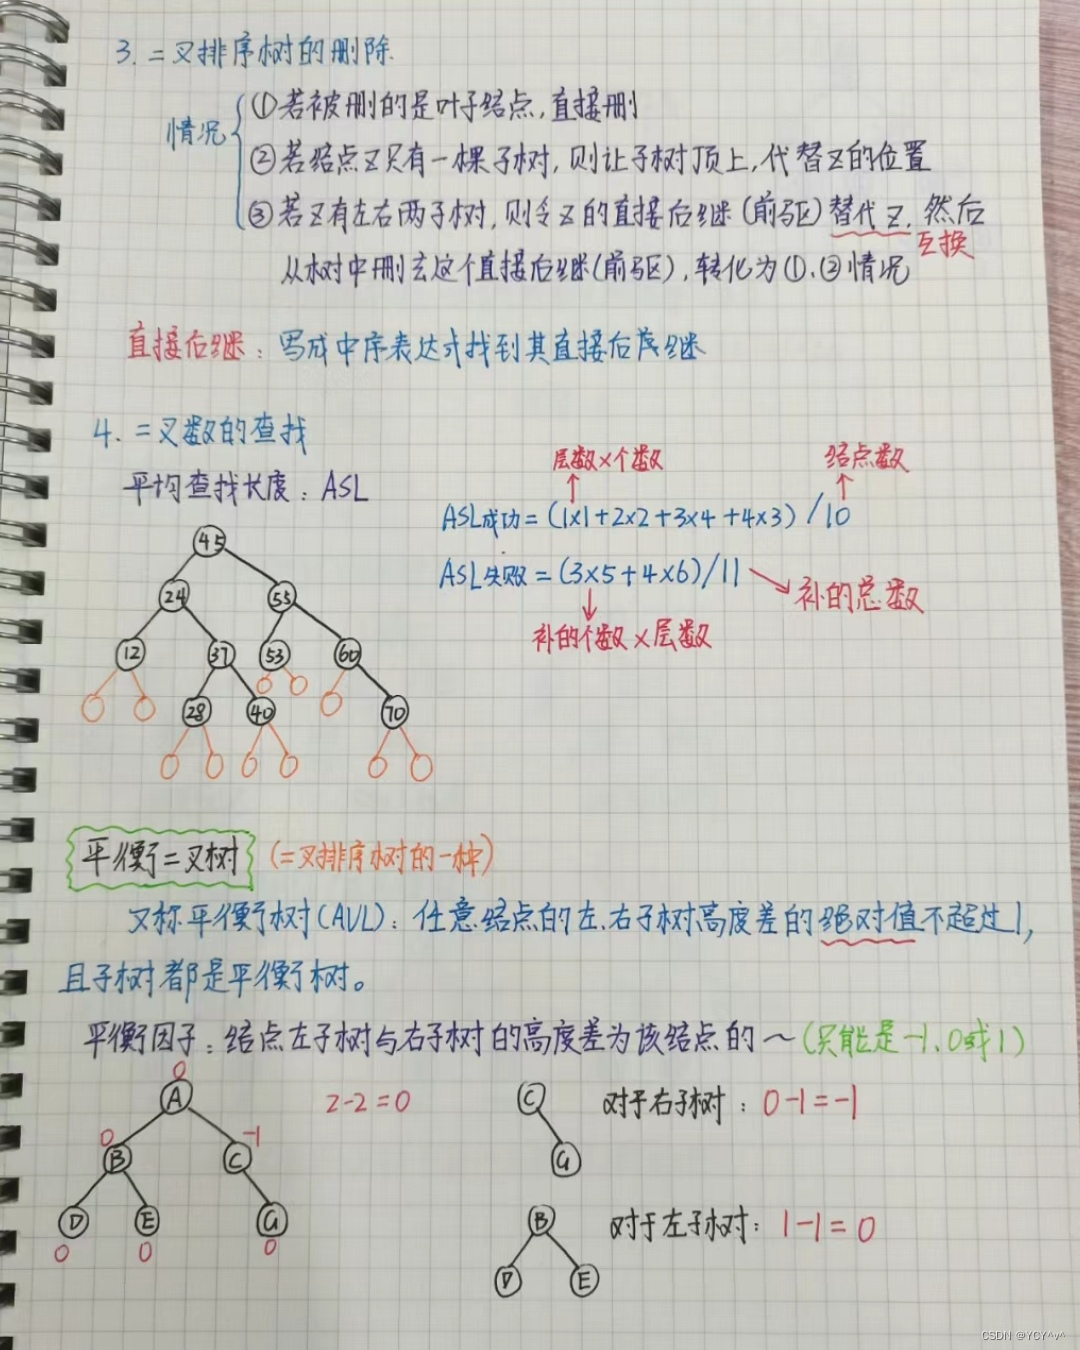 3. 二叉排序树的删除.
情况
①若被删的是叶子结点,直接删
②若结点Z只有一棵子树,则让子树顶上,代替Z的位置
③若Z有左右两子树,则令Z的直接后继(前驱)替代Z,然后
互换
从树中删去这个直接后继(前驱),转化为①.②情况
直接后继:写成中序表达式找到其直接后继
4. 二叉数的查找
平均查找长度:ASL
层数×个数
结点数
ASL成功=(1×1+2×2+3×4+4×3)/10
ASL失败=(3×5+4×6)/11
补的总数
补的个数×层数
45
24 55
12 37 53 60
28 40 70
平衡二叉树 (二叉排序树的一种)
又称平衡树(AVL):任意结点的左.右子树高度差的绝对值不超过1,
且子树都是平衡树。
平衡因子:结点左子树与右子树的高度差为该结点的~(只能是-1.0或1)
0
A
2-2=0
C
对于右子树:0-1=-1
0 -1
B C
G
D E G
0 0 0
B
对于左子树:1-1=0
D E
CSDN @YCY^v^